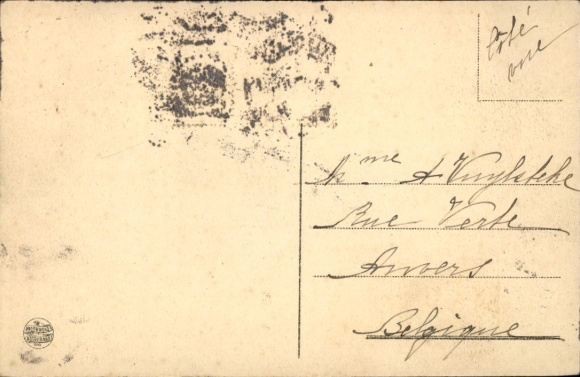 Côté
vue
Mme A Vuylsteke
Rue Verte
Anvers
Belgique